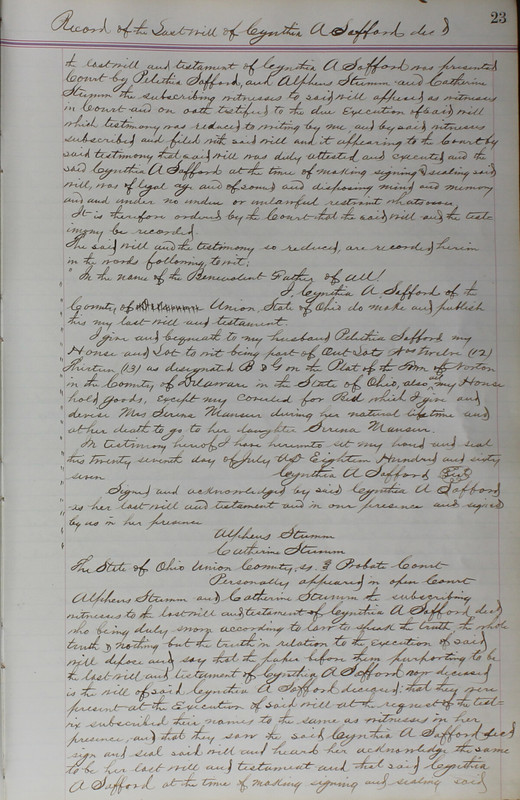 23
Record of the Last Will of Cynthia A Safford dec'd
the last will and testament of Cynthia A Safford was presented
Court by Peletiha Safford, and Alpheus Stumm and Catherine
Stumm the subscribing witnesses to said will appeared as witnesses
in Court and on oath testified to the due Execution of said will
which testimony was reduced to writing by me, and by said witnesses
subscribed and filed with said will and it appearing to the Court by
said testimony that said will was duly attested and executed and the
said Cynthia A Safford at the time of making signing & sealing said
will, was of legal age and of sound and disposing mind and memory
and and under no undue or unlawful restraint whatsoever
It is therefore ordered by the Court that the said will and the test-
imony be recorded.
The said will and the testimony so reduced, are recorded herein
in the words following, to wit;
"In the name of the Benevolent Father of all!
I, Cynthia A. Safford of the
County of Union, State of Ohio do make and publish
this my last will and testament
I give and bequeath to my husband Peletiha Safford my
House and Lot to wit being part of Out Lots Nos Twelve (12)
Thirteen (13) as designated B & G on the Plat of the Town of Norton
in the County of Delaware in the State of Ohio, also all my House
hold goods, except my Coverled for Bed which I give and
devise Mrs Serena Manseur during her natural lifetime and
at her death to go to her daughter Serena Manseur.
In testimony hereof I have hereunto set my hand and seal
this twenty seventh day of July AD Eighteen Hundred and sixty
seven Cynthia A Safford Seal
Signed and acknowledged by said Cynthia A Safford
as her last will and testament and in our presence and signed
by us in her presence
Alpheus Stumm
Catherine Stumm
The State of Ohio Union County, ss. Probate Court
Personally appeared in open Court
Alpheus Stumm and Catherine Stumm the subscribing
witnesses to the last will and testament of Cynthia A Safford dec'd
who being duly sworn according to law to speak the truth the whole
truth & nothing but the truth in relation to the execution of said
will depose and say that the paper before them purporting to be
the last will and testament of Cynthia A Safford now deceased
is the will of said Cynthia A Safford deceased; that they were
present at the Execution of said will at the request of the test-
rix subscribed their names to the same as witnesses in her
presence, and that they saw the said Cynthia A Safford dec'd
sign and seal said will and heard her acknowledge the same
to be her last will and testament and that said Cynthia
A Safford at the time of making signing and sealing said